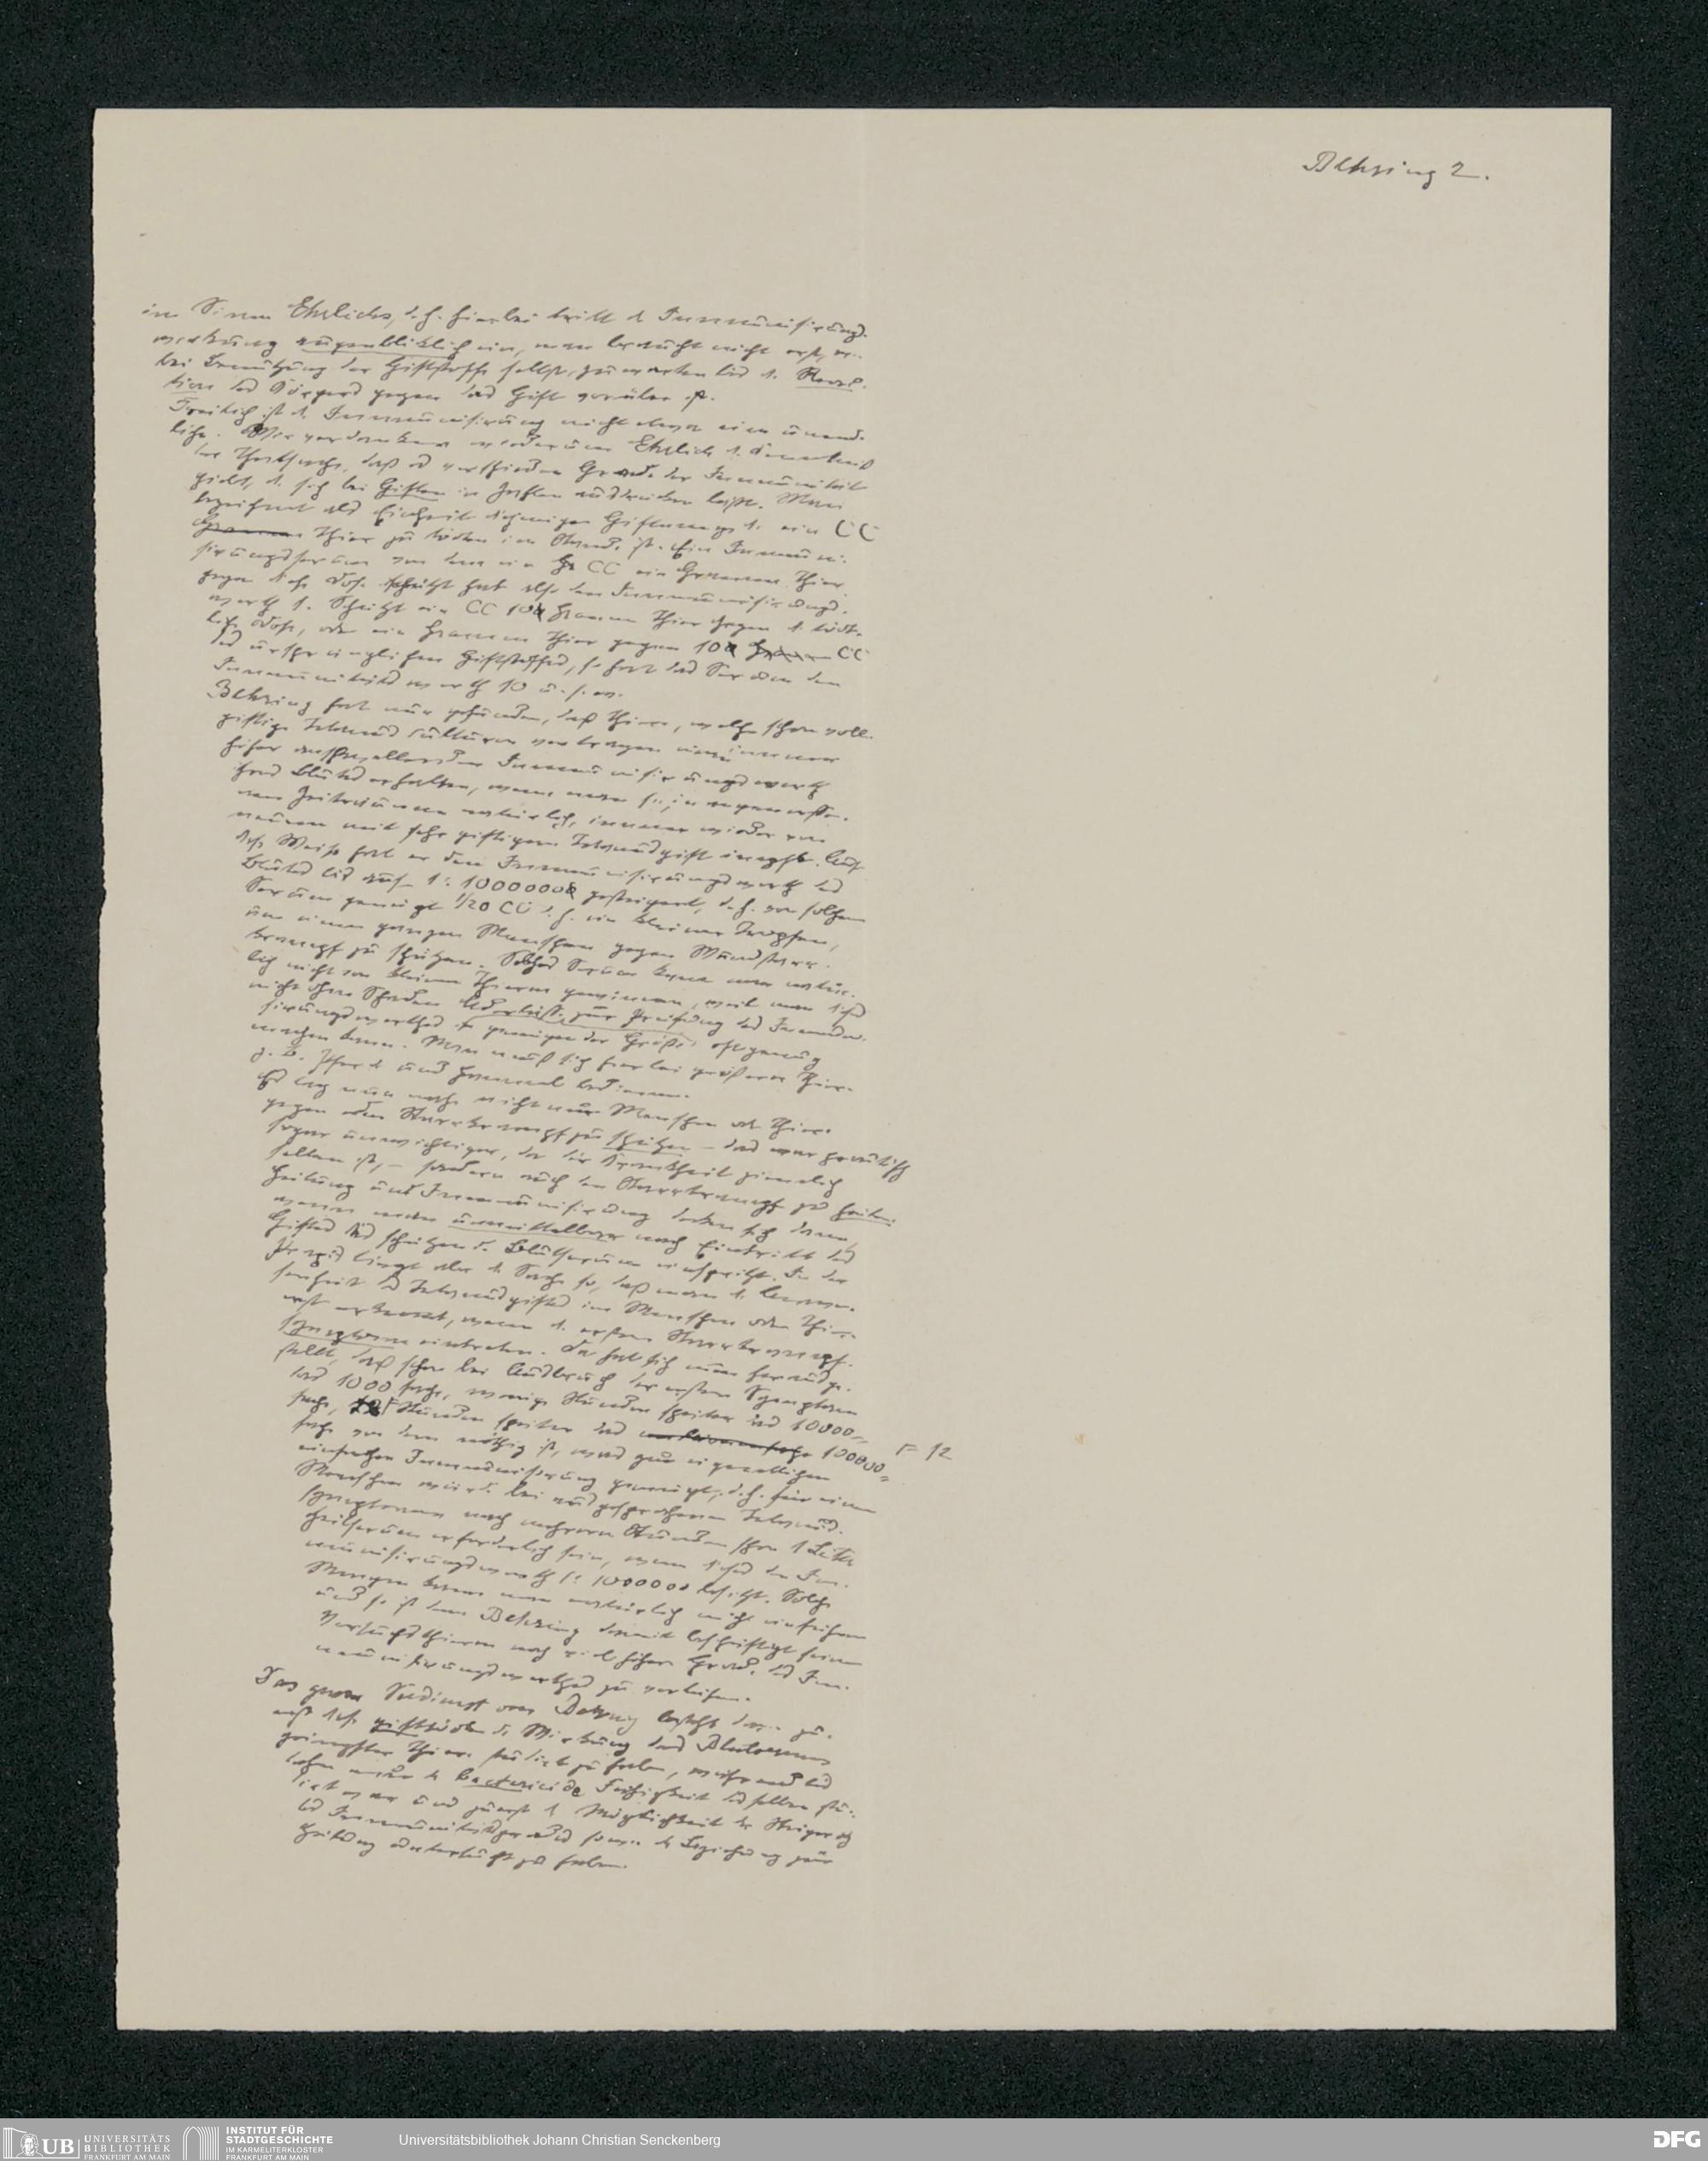 Behring 2.
im Sinne Ehrlichs, d. h. hierbei tritt d. Immunisirungs-
wirkung augenblicklich ein, man braucht nicht erst, wie
bei Benutzung der Giftstoffe selbst, zu warten bis d. Reac-
tion des Körpers gegen das Gift vorüber ist.
Freilich ist d. Immunisirung nicht eben eine unend-
liche. Wir verdanken wiederum Ehrlich d. Kenntniß
der Thatsache, daß es verschiedene Grade der Immunität
giebt, d. sich bei Giften in Zahlen ausdrücken läßt. Man
bezeichnet als Einheit diejenige Giftmenge d. ein CC
Gramm Thier zu tödten im Stande ist. Ein Immuni-
sirungsserum von dem ein CC ein Gramm Thier
gegen dies. Dose schützt hat also den Immunisirungs-
werth 1. Schützt ein CC 10 Gramm Thier gegen d. tödt-
liche Dose, oder ein Gramm Thier gegen 10 CC
des ursprünglichen Giftstoffes, so hat das Serum den
Immunitätswerth 10 u. s. w.
Behring hat nun gefunden, daß Thiere, welche schon voll-
giftige Tetanus culturen vertragen einen immer
höher anschwellenden Immunisirungswerth
ihres Blutes erhalten, wenn man sie, in angemesse-
nen Zeiträumen natürlich, immer wieder von
neuem mit sehr giftigem Tetanusgift impft. Auf
diese Weise hat er den Immunisirungswerth des
Blutes bis auf 1 : 1000000 gesteigert, d. h. von solchem
Serum genügt 1/20 CC d. h. ein kleiner Tropfen,
um einen ganzen Menschen gegen Wundstarr-
krampf zu schützen. Solches Serum kann man natür-
lich nicht von kleinen Thieren gewinnen, weil man dies
nicht ohne Schaden Aderlässe zur Prüfung des Immuni-
sirungswerthes in genügender Größe oft genug
machen kann. Man muß sich hierbei größerer Thiere
z. B. Pferde und Hammel bedienen.
Es lag nun nahe nicht nur Menschen oder Thiere
gegen den Starrkrampf zu schützen – das war praktisch
sogar unwichtiger, da die Krankheit ziemlich
selten ist, – sondern auch den Starrkrampf zu heilen.
Heilung und Immunisirung decken sich dann,
wenn man unmittelbar nach Eintritt des
Giftes das schützende Blutserum einspritzt. In der
Praxis liegt aber d. Sache so, daß man d. Anwe-
senheit des Tetanusgiftes im Menschen oder Thier
erst erkennt, wenn d. ersten Starrkrampf-
symptome eintreten. Da hat sich nun herausge-
stellt, daß schon bei Ausbruch der ersten Symptome
das 1000 fache, wenige Stunden später das 10000-
fache, Stunden später das 100000- 12
fache von dem nöthig ist, was zur eigentlichen
einfachen Immunisirung genügt, d. h. für einen
Menschen würde bei ausgesprochenen Tetanus-
symptomen nach mehreren Stunden schon 1 Liter
Heilserum erforderlich sein, wenn dies den Im-
munisirungswerth 1 : 1000000 besitzt. Solche
Mengen kann man natürlich nicht einführen
und so ist denn Behring damit beschäftigt seinen
Versuchsthieren noch viel höhere Grade des Im-
munisirungswerthes zu verleihen.
Das ganze Verdienst von Behring besteht darin zu-
erst diese gifttödtende Wirkung des Blutserums
geimpfter Thiere studirt zu haben, während bis
dahin nur d. bactericide Fähigkeit desselben stu-
dirt war und zuerst d. Möglichkeit der Steigerung
des Immunitätsgrades sowie d. Beziehung zur
Heilung untersucht zu haben.
UB UNIVERSITÄTS BIBLIOTHEK FRANKFURT AM MAIN
INSTITUT FÜR STADTGESCHICHTE IM KARMELITERKLOSTER FRANKFURT AM MAIN
Universitätsbibliothek Johann Christian Senckenberg
DFG